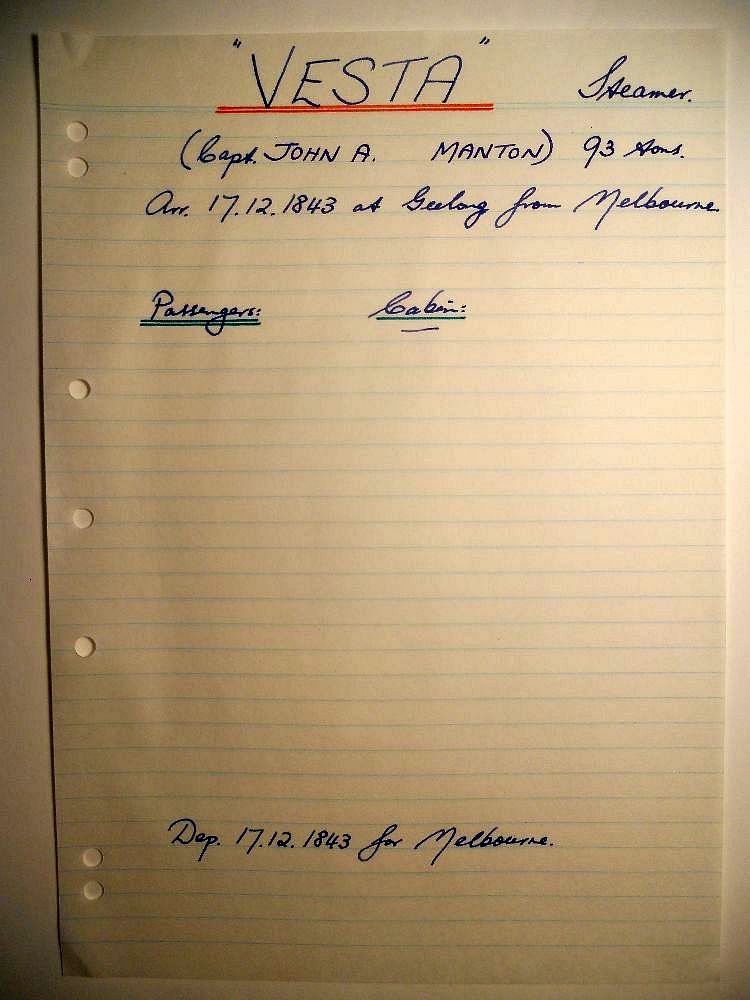 "VESTA" Steamer.
(Capt. JOHN A. MANTON) 93 tons.
Arr. 17.12.1843 at Geelong from Melbourne
Passengers: Cabin:
Dep. 17.12.1843 for Melbourne.